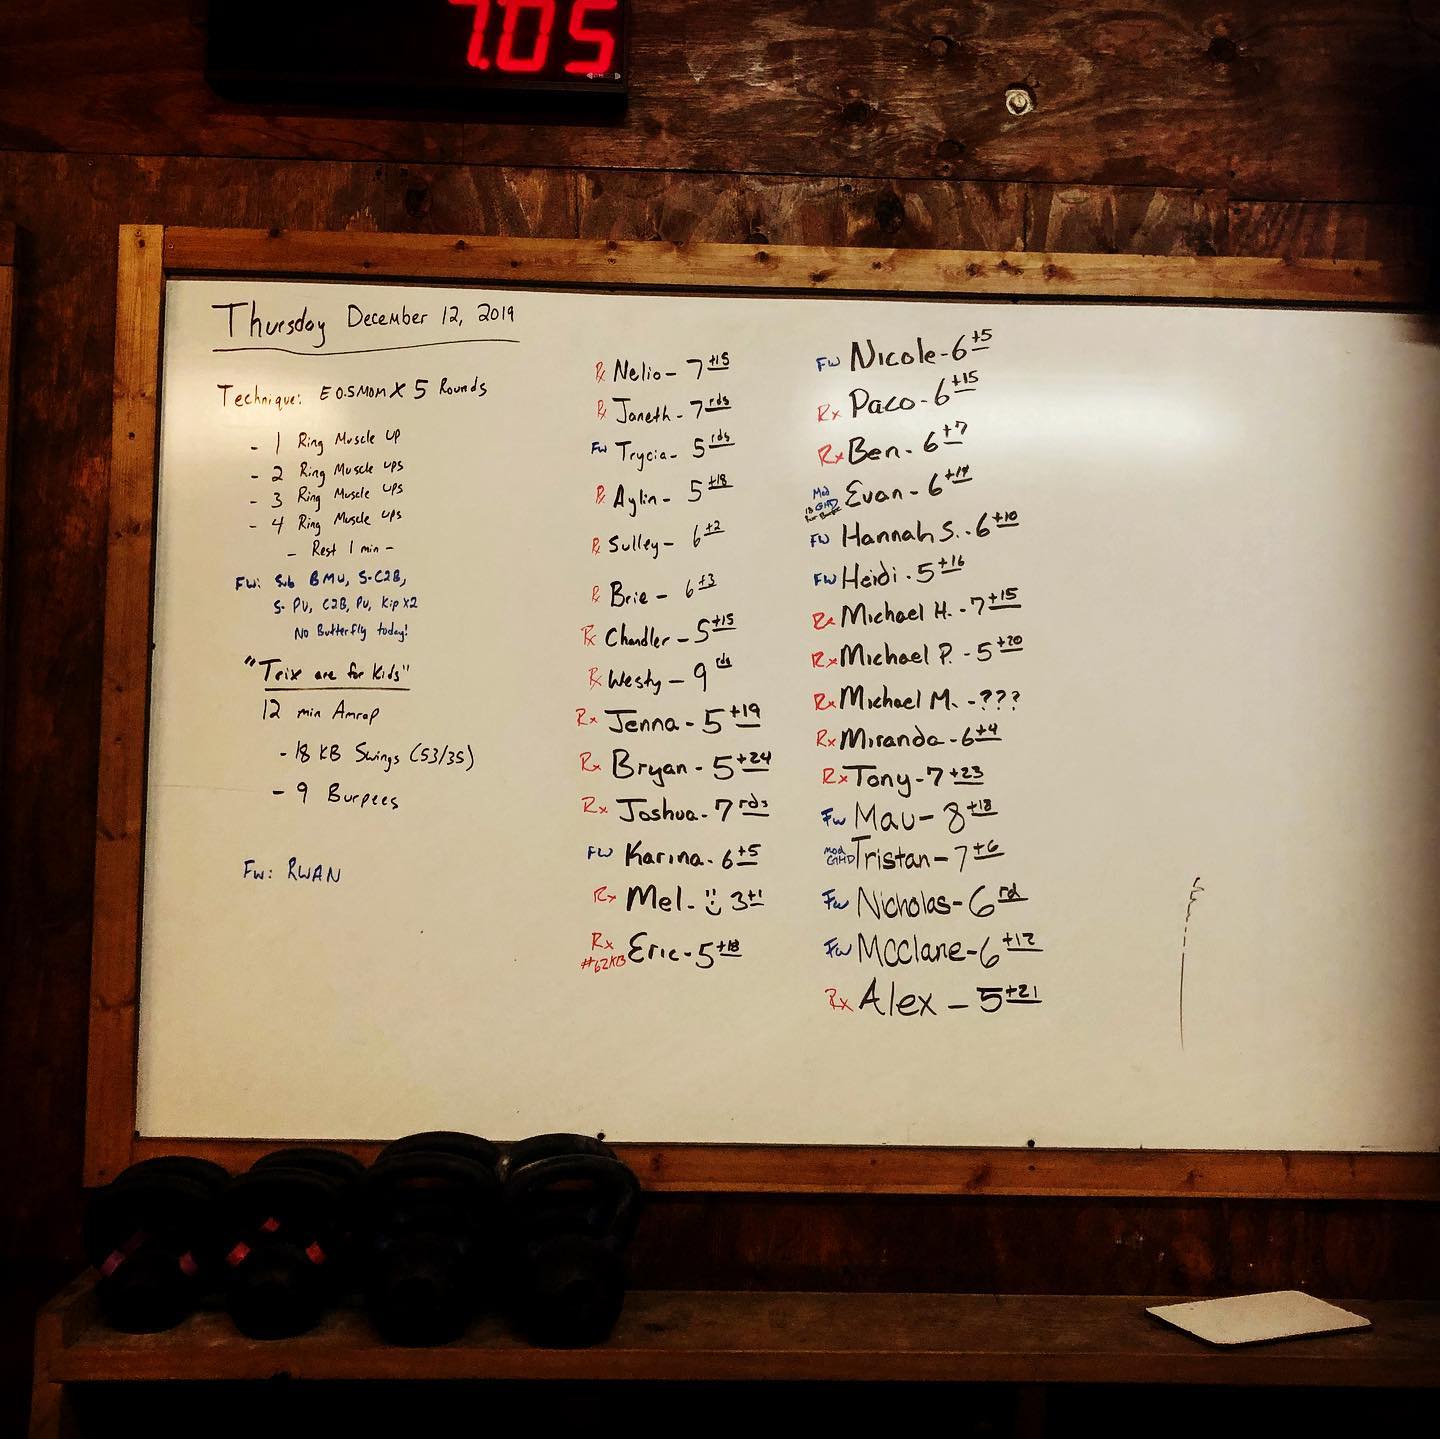 7:05
Thursday December 12, 2019
Technique: E0.5MOM X 5 Rounds
- 1 Ring Muscle up
- 2 Ring Muscle ups
- 3 Ring Muscle ups
- 4 Ring Muscle ups
- Rest 1 min -
FW: Sub BMU, S-C2B,
S-PU, C2B, PU, Kip x2
No Butterfly today!
"Trix are for Kids"
12 min Amrap
- 18 KB Swings (53/35)
- 9 Burpees
FW: RWAN
Rx Nelio - 7 +15
Rx Janeth - 7 rds
FW Trycia - 5 rds
Rx Aylin - 5 +18
Rx Sulley - 6 +2
Rx Brie - 6 +3
Rx Chandler - 5 +15
Rx Westy - 9 rds
Rx Jenna - 5 +19
Rx Bryan - 5 +24
Rx Joshua - 7 rds
FW Karina - 6 +5
Rx Mel - 3 +1
Rx
#62KB Eric - 5 +18
FW Nicole - 6 +5
Rx Paco - 6 +15
Rx Ben - 6 +7
Mod
GHD
Evan - 6 +19
FW Hannah S. - 6 +10
FW Heidi - 5 +16
Rx Michael H. - 7 +15
Rx Michael P. - 5 +20
Rx Michael M. - ???
Rx Miranda - 6 +4
Rx Tony - 7 +23
FW Mau - 8 +18
mod
GHD Tristan - 7 +6
FW Nicholas - 6 rd
FW McClane - 6 +12
Rx Alex - 5 +21